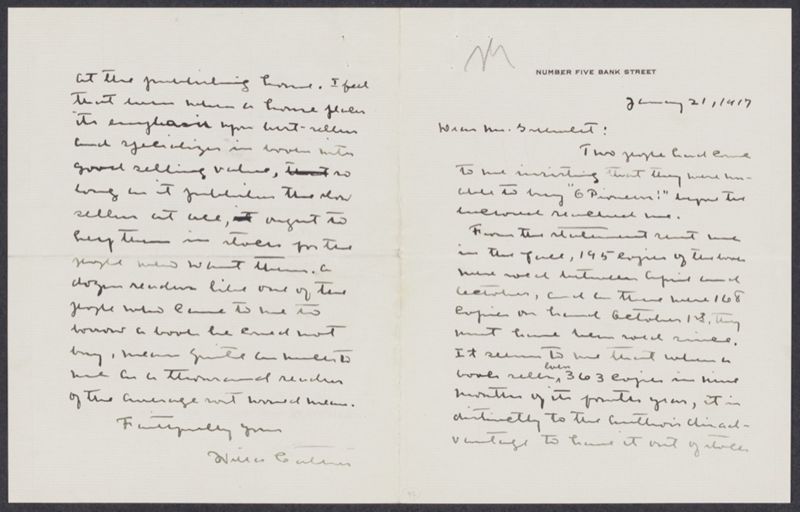 NUMBER FIVE BANK STREET
January 21, 1917
Dear Mr. Greenslet:
Two people had come
to me insisting that they were un-
able to buy "O Pioneers!" before the
enclosed reached me.
From the statement sent me
in the fall, 195 copies of the book
were sold between April and
October, and as there were 168
copies on hand October 18, they
must have been sold since.
It seems to me that when a
book sells, even, 363 copies in nine
months of its fourth year, it is
distinctly to the author's disad-
vantage to have it out of stock
at the publishing house. I feel
that even when a house places
its emphasis upon best-sellers
and specializes in books with
good selling value, so
long as it publishes the slow
sellers at all, it ought to
keep them in stock for the
people who want them. A
dozen readers like one of the
people who came to me to
borrow a book he could not
buy, mean quite as much to
me as a thousand readers
of the average sort would mean.
Faithfully yours
Willa Cather